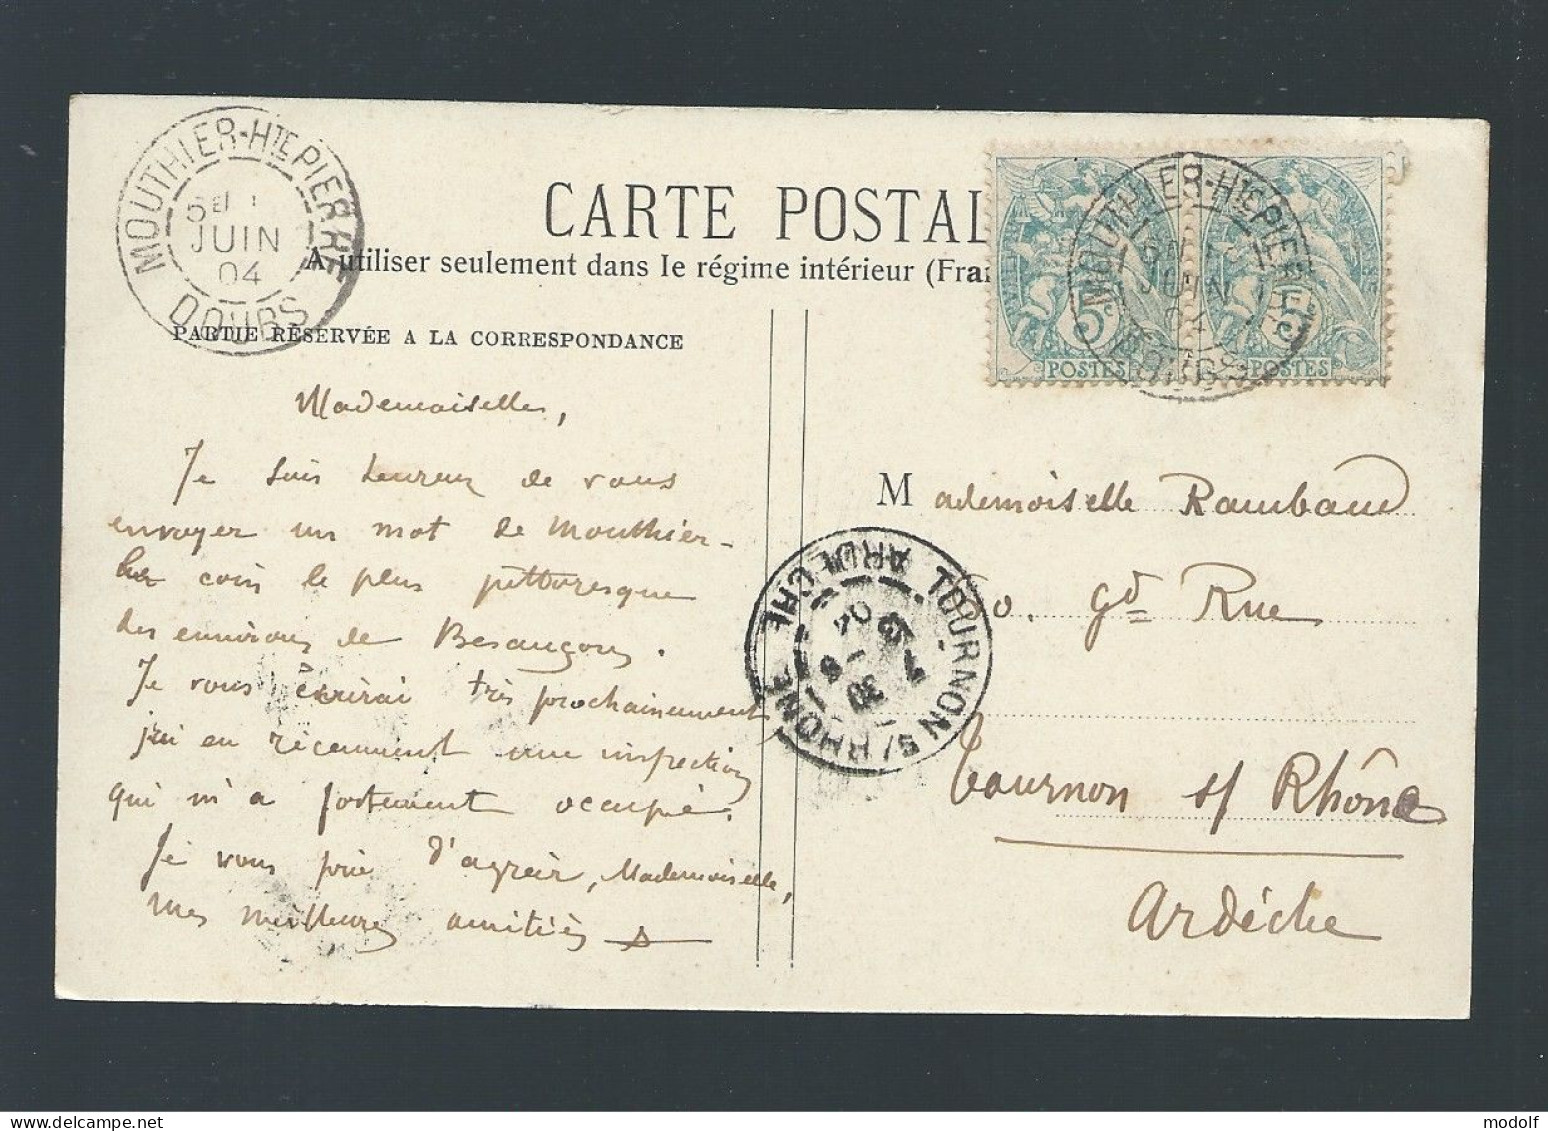 MOUTHIER-HTE PIERRE
5E 1
JUIN
04
DOUBS
CARTE POSTAL
A utiliser seulement dans le régime intérieur (Fran
PARTIE RÉSERVÉE A LA CORRESPONDANCE
5c 5c
POSTES POSTES
MOUTHIER-HTE PIERRE
JUIN
04
DOUBS
Mademoiselle,
Je suis heureux de vous
envoyer un mot de Mouthier -
coin le plus pittoresque
des environs de Besançon.
Je vous écrirai très prochainement
j'ai eu récemment une inspection
qui m'a fortement occupé.
Je vous prie d'agréer, Mademoiselle,
mes meilleures amitiés
Mademoiselle Rambaud
Gde Rue
Tournon s/ Rhône
Ardèche
TOURNON S/ RHÔNE
ARDÈCHE
04
modolf
www.delcampe.net